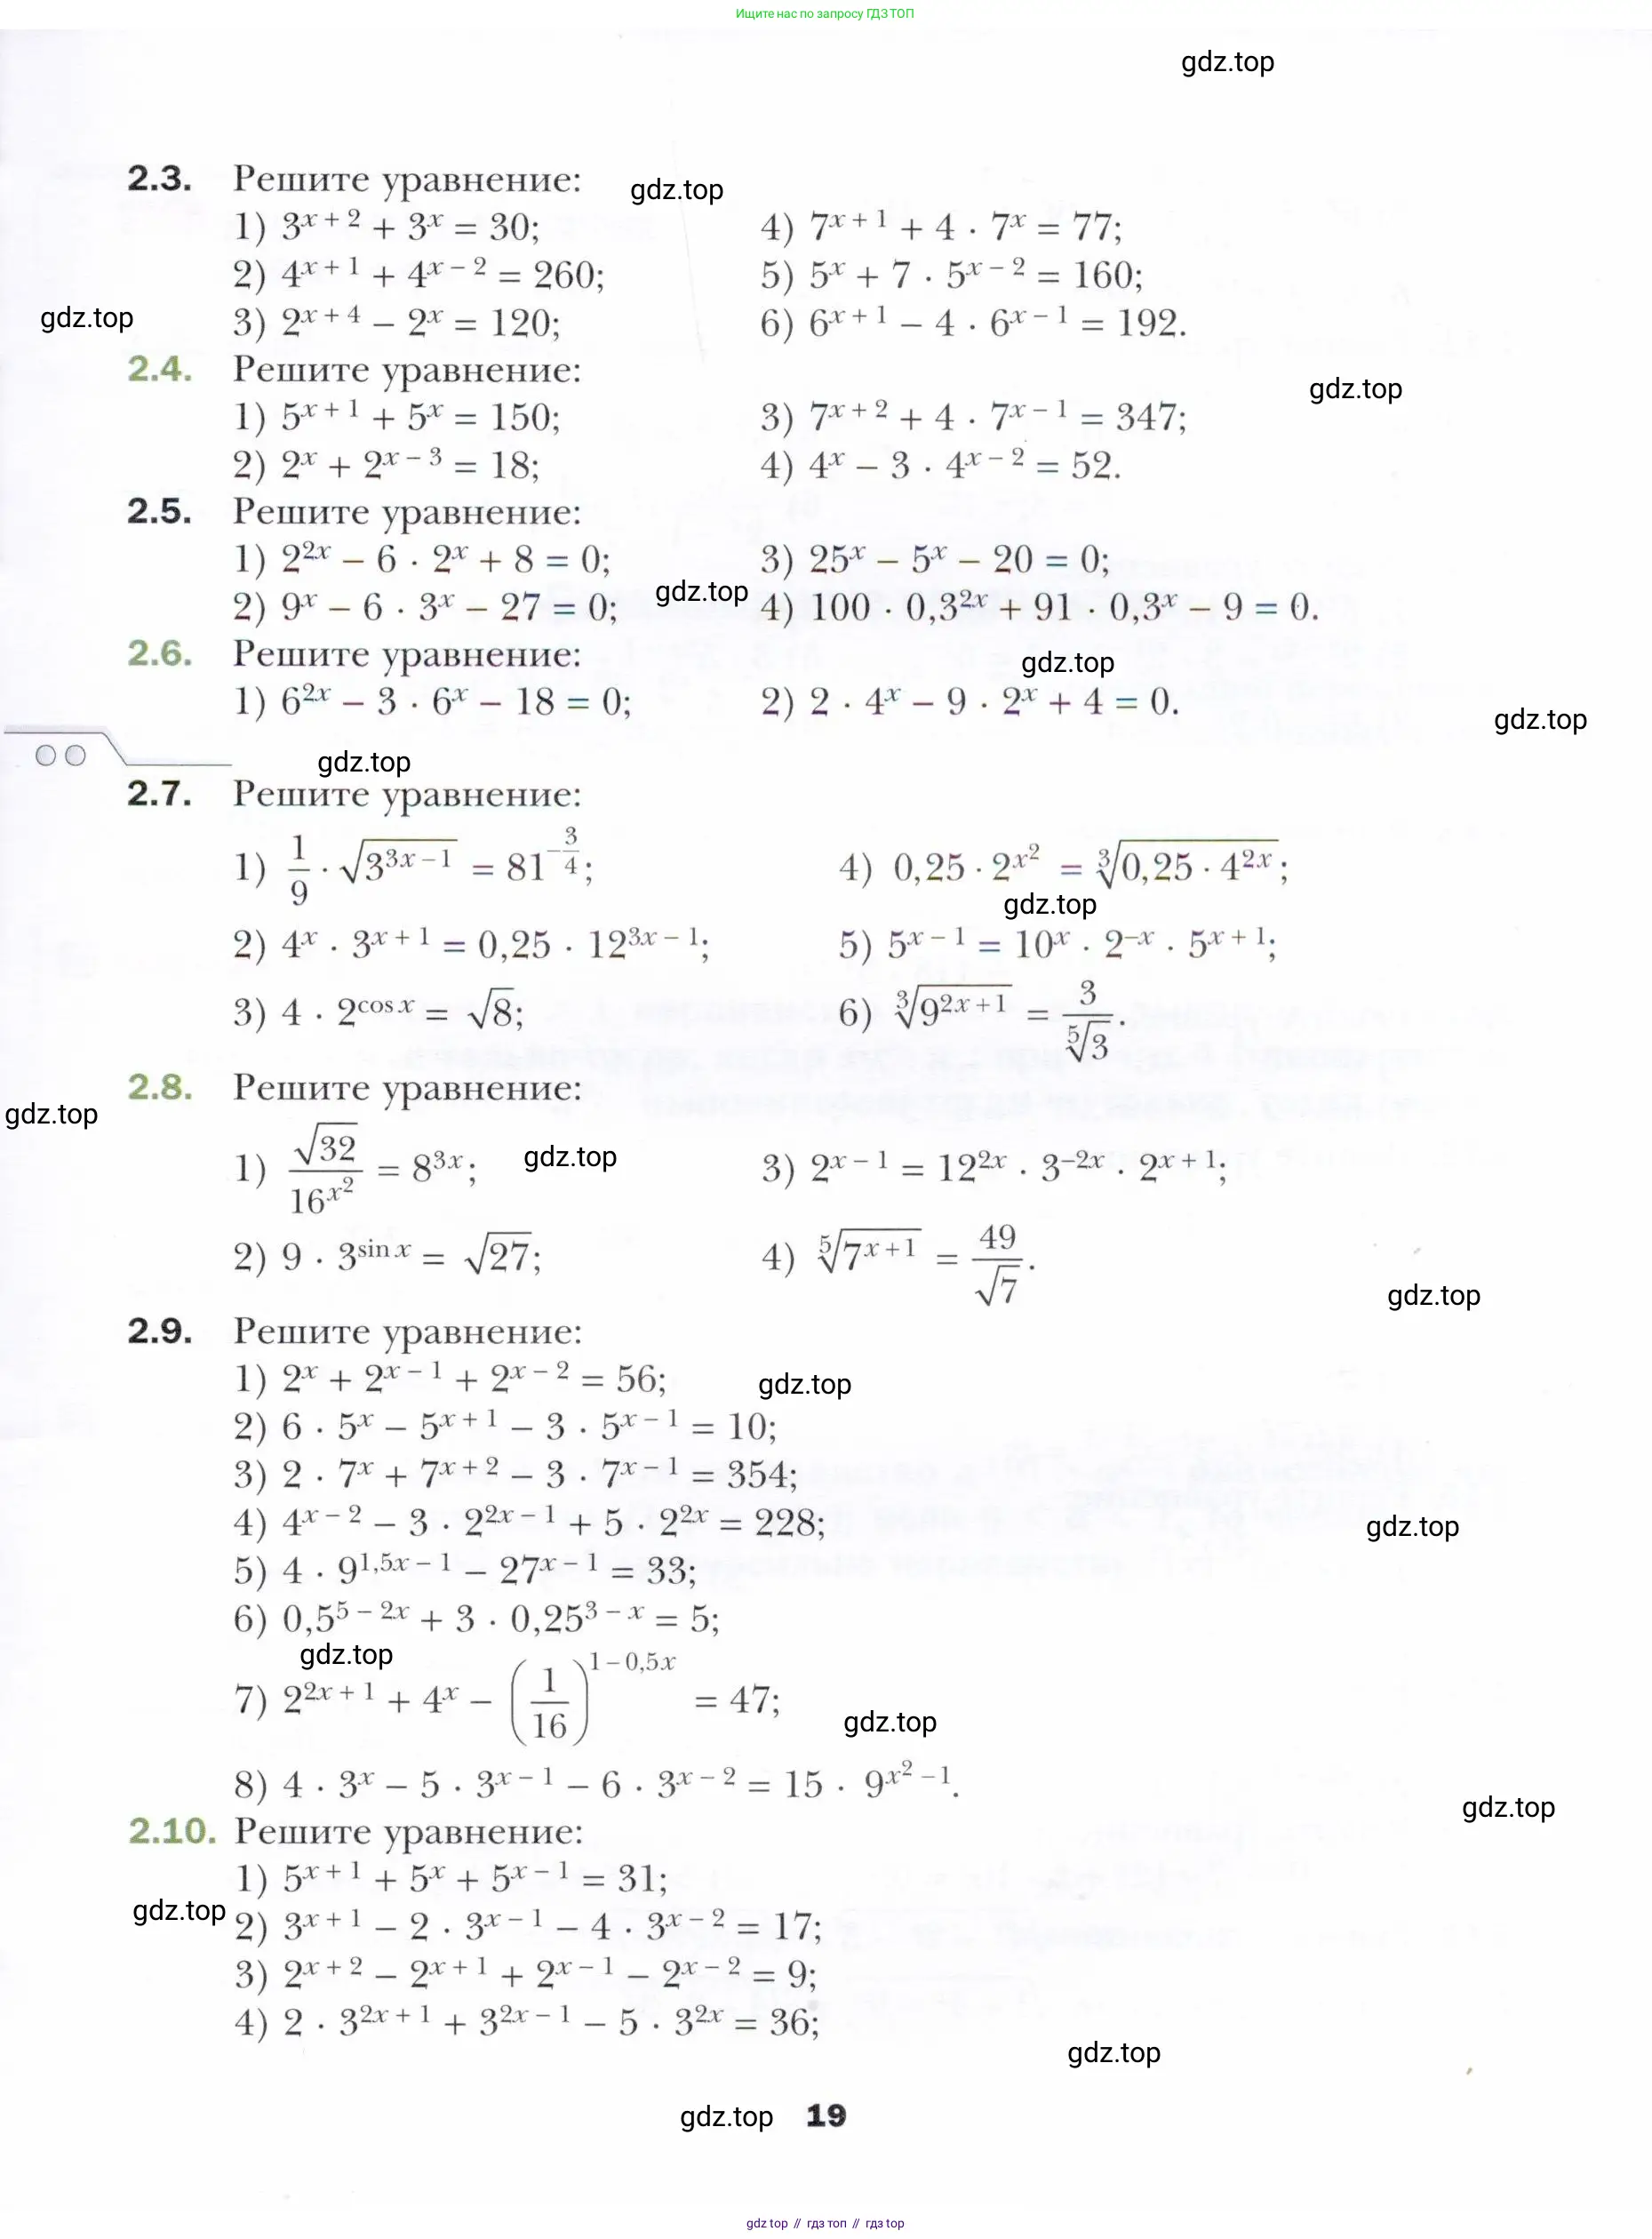 Ищите нас по запросу ГДЗ ТОП
gdz.top
2.3. Решите уравнение:
gdz.top
1) 3^{x + 2} + 3^x = 30; 4) 7^{x + 1} + 4 · 7^x = 77;
2) 4^{x + 1} + 4^{x – 2} = 260; 5) 5^x + 7 · 5^{x – 2} = 160;
gdz.top
3) 2^{x + 4} – 2^x = 120; 6) 6^{x + 1} – 4 · 6^{x – 1} = 192.
2.4. Решите уравнение:
gdz.top
1) 5^{x + 1} + 5^x = 150; 3) 7^{x + 2} + 4 · 7^{x – 1} = 347;
2) 2^x + 2^{x – 3} = 18; 4) 4^x – 3 · 4^{x – 2} = 52.
2.5. Решите уравнение:
1) 2^{2x} – 6 · 2^x + 8 = 0; 3) 25^x – 5^x – 20 = 0;
gdz.top
2) 9^x – 6 · 3^x – 27 = 0; 4) 100 · 0,3^{2x} + 91 · 0,3^x – 9 = 0.
2.6. Решите уравнение:
gdz.top
1) 6^{2x} – 3 · 6^x – 18 = 0; 2) 2 · 4^x – 9 · 2^x + 4 = 0.
gdz.top
gdz.top
2.7. Решите уравнение:
1) \frac{1}{9} · \sqrt{3^{3x – 1}} = 81^{-\frac{3}{4}}; 4) 0,25 · 2^{x^2} = \sqrt[3]{0,25 · 4^{2x}};
gdz.top
2) 4^x · 3^{x + 1} = 0,25 · 12^{3x – 1}; 5) 5^{x – 1} = 10^x · 2^{–x} · 5^{x + 1};
3) 4 · 2^{cos x} = \sqrt{8}; 6) \sqrt[3]{9^{2x + 1}} = \frac{3}{\sqrt[5]{3}}.
2.8. Решите уравнение:
gdz.top
1) \frac{\sqrt{32}}{16^{x^2}} = 8^{3x}; gdz.top 3) 2^{x – 1} = 12^{2x} · 3^{–2x} · 2^{x + 1};
2) 9 · 3^{sin x} = \sqrt{27}; 4) \sqrt[5]{7^{x + 1}} = \frac{49}{\sqrt{7}}.
gdz.top
2.9. Решите уравнение:
1) 2^x + 2^{x – 1} + 2^{x – 2} = 56; gdz.top
2) 6 · 5^x – 5^{x + 1} – 3 · 5^{x – 1} = 10;
3) 2 · 7^x + 7^{x + 2} – 3 · 7^{x – 1} = 354;
4) 4^{x – 2} – 3 · 2^{2x – 1} + 5 · 2^{2x} = 228; gdz.top
5) 4 · 9^{1,5x – 1} – 27^{x – 1} = 33;
6) 0,5^{5 – 2x} + 3 · 0,25^{3 – x} = 5;
gdz.top
7) 2^{2x + 1} + 4^x – (\frac{1}{16})^{1 – 0,5x} = 47;
gdz.top
8) 4 · 3^x – 5 · 3^{x – 1} – 6 · 3^{x – 2} = 15 · 9^{x^2 – 1}.
gdz.top
2.10. Решите уравнение:
1) 5^{x + 1} + 5^x + 5^{x – 1} = 31;
gdz.top
2) 3^{x + 1} – 2 · 3^{x – 1} – 4 · 3^{x – 2} = 17;
3) 2^{x + 2} – 2^{x + 1} + 2^{x – 1} – 2^{x – 2} = 9;
4) 2 · 3^{2x + 1} + 3^{2x – 1} – 5 · 3^{2x} = 36;
gdz.top
gdz.top 19
gdz top // гдз топ // гдз top